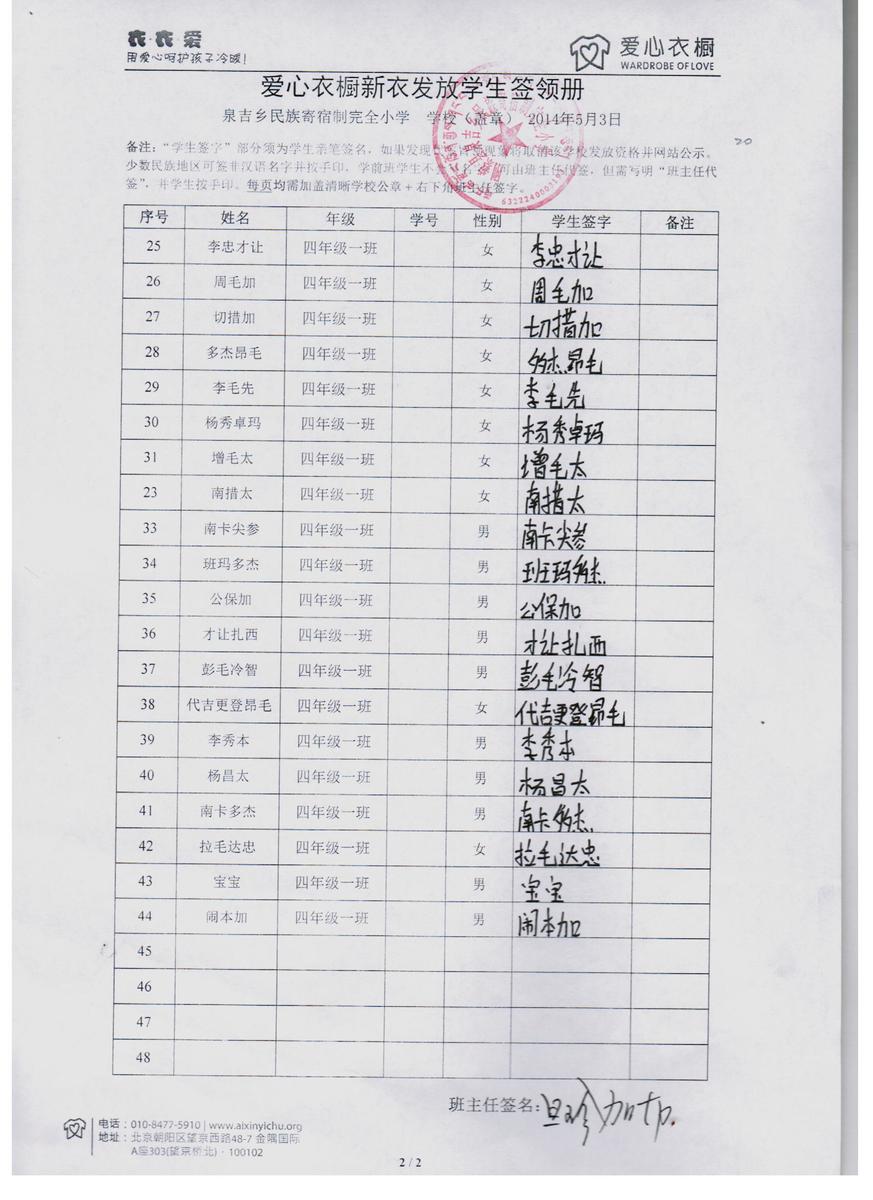 衣·衣·爱
用爱心呵护孩子冷暖！
爱心衣橱
WARDROBE OF LOVE
爱心衣橱新衣发放学生签领册
泉吉乡民族寄宿制完全小学 学校（盖章） 2014年5月3日
20
备注：“学生签字”部分须为学生亲笔签名，如果发现 将取消该学校发放资格并网站公示。
少数民族地区可签非汉语名字并按手印，学前班学生不 名 可由班主任代签，但需写明“班主任代
签”，并学生按手印。每页均需加盖清晰学校公章＋右下角班主任签字。
序号 姓名 年级 学号 性别 学生签字 备注
25 李忠才让 四年级一班 女 李忠才让
26 周毛加 四年级一班 女 周毛加
27 切措加 四年级一班 女 切措加
28 多杰昂毛 四年级一班 女 多杰昂毛
29 李毛先 四年级一班 女 李毛先
30 杨秀卓玛 四年级一班 女 杨秀卓玛
31 增毛太 四年级一班 女 增毛太
23 南措太 四年级一班 女 南措太
33 南卡尖参 四年级一班 男 南卡尖参
34 班玛多杰 四年级一班 男 班玛多杰
35 公保加 四年级一班 男 公保加
36 才让扎西 四年级一班 男 才让扎西
37 彭毛冷智 四年级一班 男 彭毛冷智
38 代吉更登昂毛 四年级一班 女 代吉更登昂毛
39 李秀本 四年级一班 男 李秀本
40 杨昌太 四年级一班 男 杨昌太
41 南卡多杰 四年级一班 男 南卡多杰
42 拉毛达忠 四年级一班 女 拉毛达忠
43 宝宝 四年级一班 男 宝宝
44 闹本加 四年级一班 男 闹本加
45
46
47
48
班主任签名：
电话：010-8477-5910 | www.aixinyichu.org
地址：北京朝阳区望京西路48-7 金隅国际
A座303(望京桥北)·100102
2 / 2